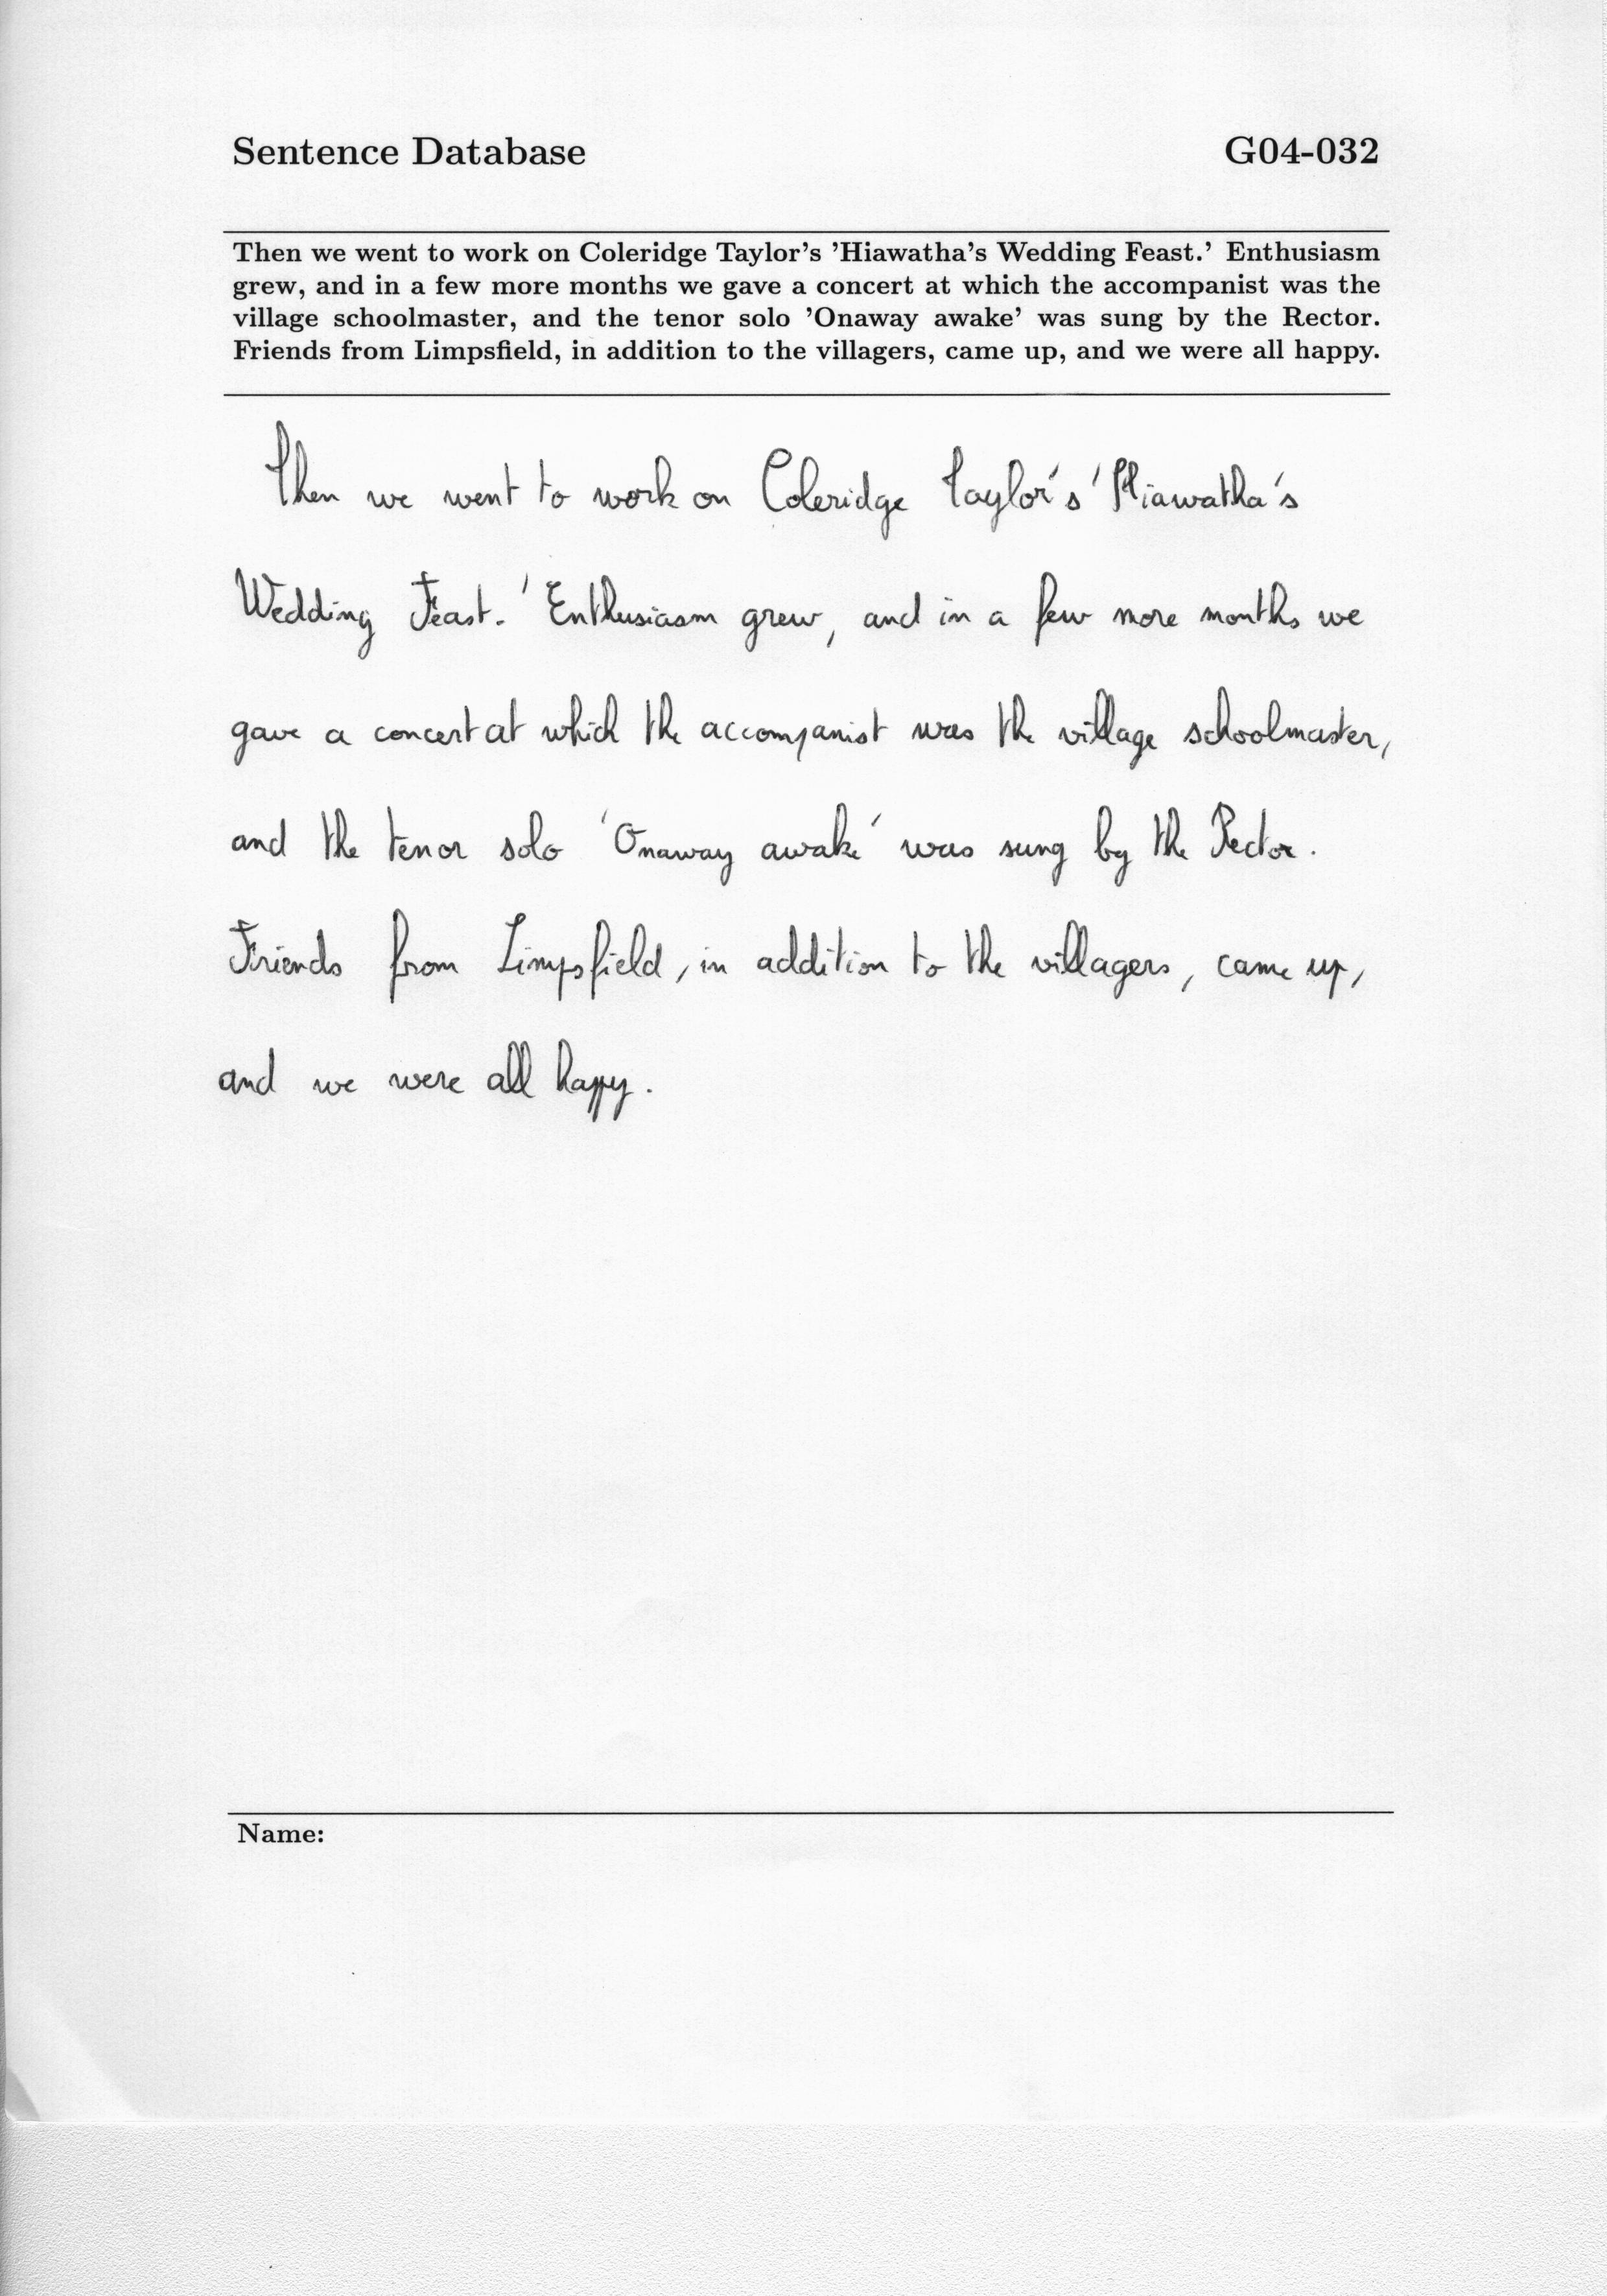 Sentence Database G04-032
Then we went to work on Coleridge Taylor's 'Hiawatha's Wedding Feast.' Enthusiasm
grew, and in a few more months we gave a concert at which the accompanist was the
village schoolmaster, and the tenor solo 'Onaway awake' was sung by the Rector.
Friends from Limpsfield, in addition to the villagers, came up, and we were all happy.
Then we went to work on Coleridge Taylor's 'Hiawatha's
Wedding Feast.' Enthusiasm grew, and in a few more months we
gave a concert at which the accompanist was the village schoolmaster,
and the tenor solo 'Onaway awake' was sung by the Rector.
Friends from Limpsfield, in addition to the villagers, came up,
and we were all happy.
Name: